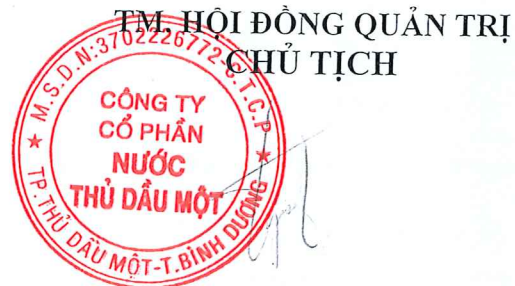 TM. HỘI ĐỒNG QUẢN TRỊ
CHỦ TỊCH
M.S.D.N:3702226772-C.T.C.P
CÔNG TY
CỔ PHẦN
NƯỚC
THỦ DẦU MỘT
TP.THỦ DẦU MỘT-T.BÌNH DƯƠNG